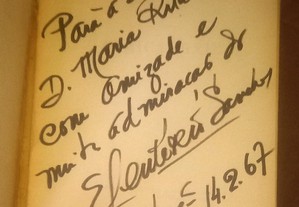 Para a
D. Maria
com amizade e
muita admiração do
Eleutério Sanches
14.2.67